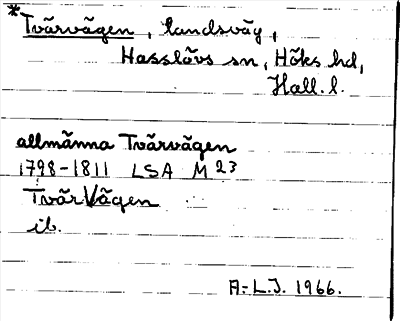 *Tvärvägen, landsväg,
Hasslövs sn, Höks hd,
Hall. l.
allmänna Tvärvägen
1798-1811 LSA M 23
TvärVägen
ib.
A.-L.J. 1966.